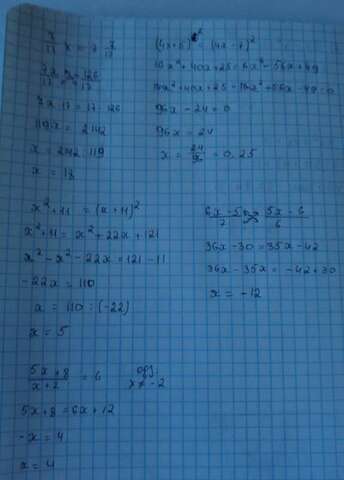 7/17 x = 7 7/17
7x/17 = 126/17
7x · 17 = 17 · 126
119x = 2142
x = 2142 : 119
x = 18
(4x+5)² = (4x-7)²
16x²+40x+25 = 16x²-56x+49
16x²+40x+25-16x²+56x-49=0
96x-24=0
96x=24
x = 24/96 = 0,25
x²+11 = (x+11)²
x²+11 = x²+22x+121
x²-x²-22x=121-11
-22x=110
x = 110 : (-22)
x = 5
6x-5/7 = 5x-6/6
36x-30=35x-42
36x-35x=-42+30
x = -12
5x+8/x+2 = 6
x ≠ -2
5x+8=6x+12
-x=4
x=4